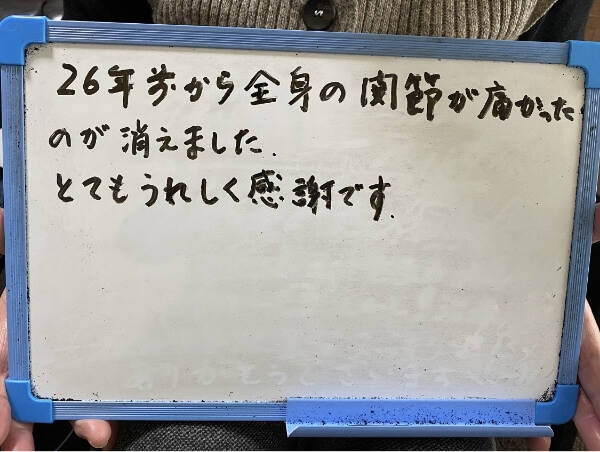 26年前から全身の関節が痛かった
のが消えました.
とてもうれしく感謝です.